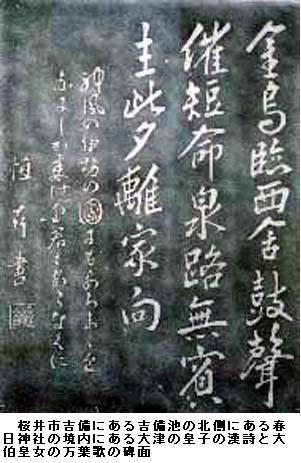 金烏臨西舎鼓聲
催短命泉路無賓
主此夕離家向
神風の伊勢の國にもあらましを
なにしか来けむ君もあらなくに
恒存書
桜井市吉備にある吉備池の北側にある春
日神社の境内にある大津の皇子の漢詩と大
伯皇女の万葉歌の碑面